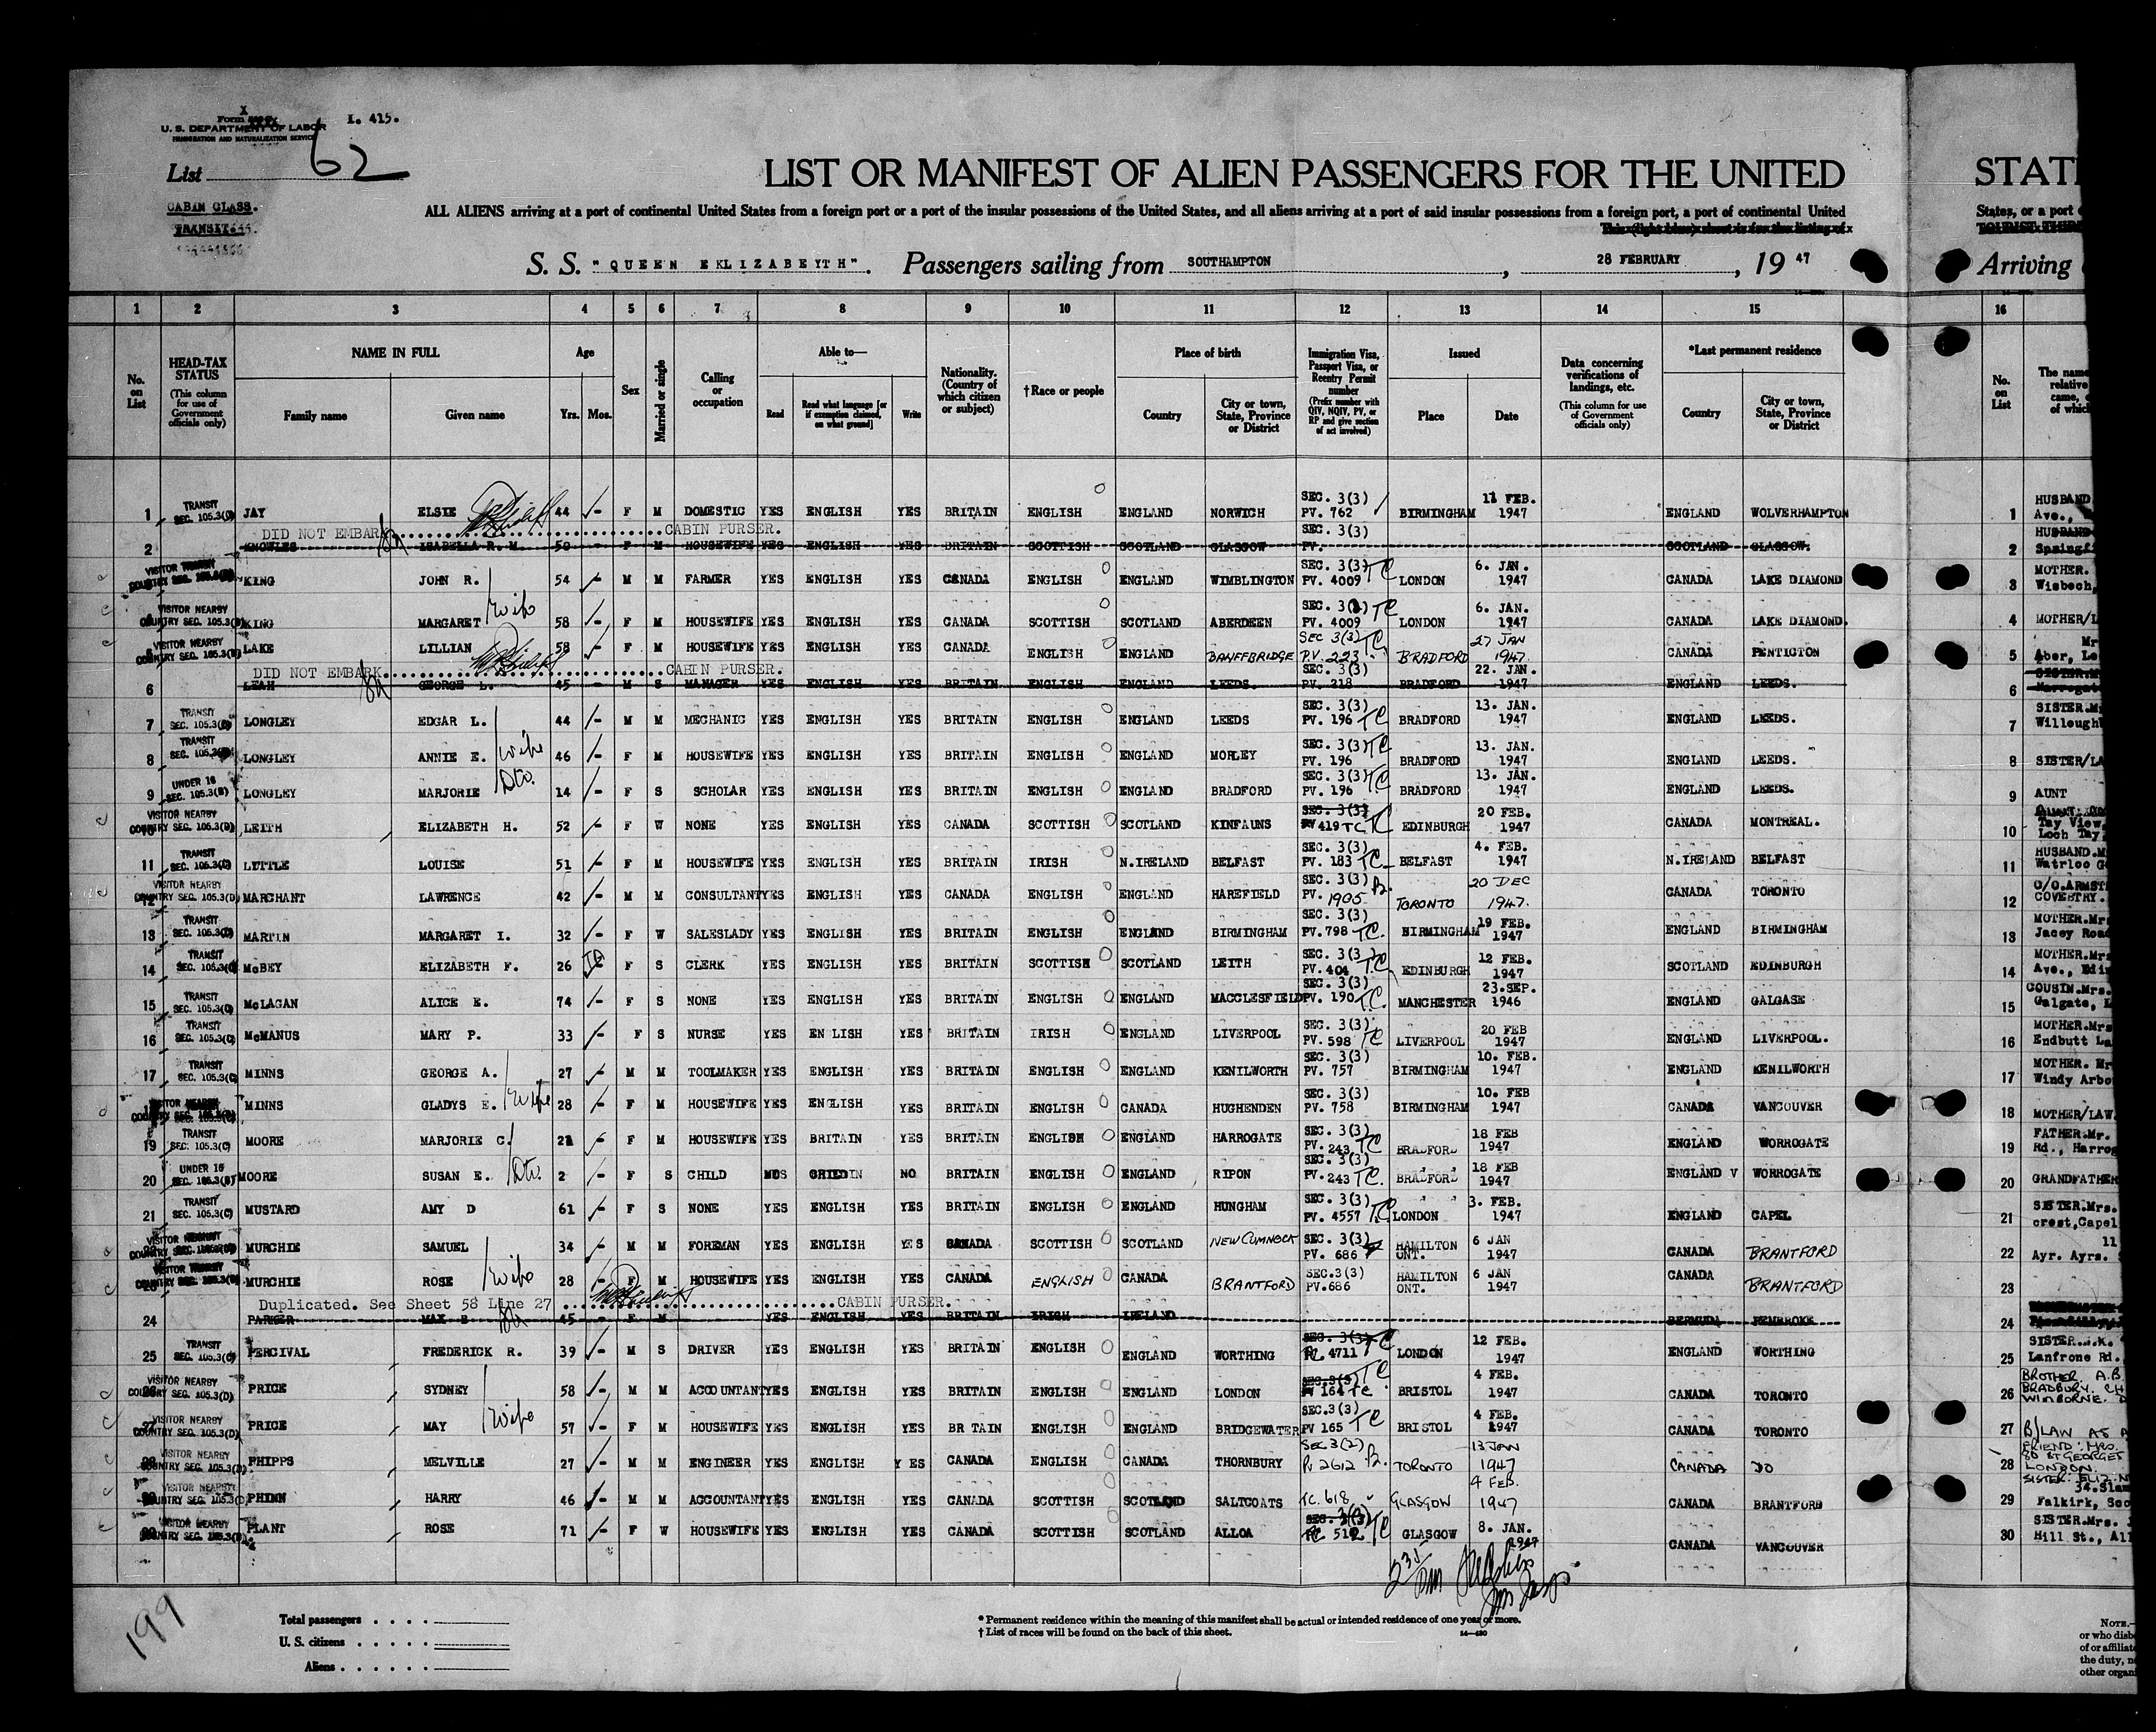 X
Form
I. 415.
U. S. DEPARTMENT OF LABOR
IMMIGRATION AND NATURALIZATION SERVICE
List 62
CABIN CLASS.
TRANSIT.
LIST OR MANIFEST OF ALIEN PASSENGERS FOR THE UNITED
STAT
ALL ALIENS arriving at a port of continental United States from a foreign port or a port of the insular possessions of the United States, and all aliens arriving at a port of said insular possessions from a foreign port, a port of continental United
States, or a port
This (light blue) sheet is for the listing of
S. S. "QUEEN EKLIZABEYTH". Passengers sailing from SOUTHAMPTON, 28 FEBRUARY, 19 47
Arriving
1 2 3 4 5 6 7 8 9 10 11 12 13 14 15 16
No. on List
HEAD-TAX STATUS (This column for use of Government officials only)
NAME IN FULL Family name Given name
Age Yrs. Mos.
Sex
Married or single
Calling or occupation
Able to— Read Read what language [or if exemption claimed, on what ground] Write
Nationality. (Country of which citizen or subject)
†Race or people
Place of birth Country City or town, State, Province or District
Immigration Visa, Passport Visa, or Reentry Permit number (Prefix number with QIV, NQIV, PV, or RP and give section of act involved)
Issued Place Date
Data concerning verifications of landings, etc. (This column for use of Government officials only)
*Last permanent residence Country City or town, State, Province or District
No. on List
The name relative came, of which
1 TRANSIT SEC. 105.3(C) JAY ELSIE 44 F M DOMESTIC YES ENGLISH YES BRITAIN ENGLISH ENGLAND NORWICH SEC. 3(3) PV. 762 BIRMINGHAM 11 FEB. 1947 ENGLAND WOLVERHAMPTON 1 HUSBAND Ave.,
DID NOT EMBARK CABIN PURSER.
2 KNOWLES ISABELLA R. M. 50 F M HOUSEWIFE YES ENGLISH YES BRITAIN SCOTTISH SCOTLAND GLASGOW SEC. 3(3) PV. SCOTLAND GLASGOW. 2 HUSBAND Springf
VISITOR NEARBY COUNTRY SEC. 105.3(D) KING JOHN R. 54 M M FARMER YES ENGLISH YES CANADA ENGLISH ENGLAND WIMBLINGTON SEC. 3(3) TC PV. 4009 LONDON 6. JAN. 1947 CANADA LAKE DIAMOND 3 MOTHER. Wisbech,
VISITOR NEARBY COUNTRY SEC. 105.3(D) KING MARGARET wife 58 F M HOUSEWIFE YES ENGLISH YES CANADA SCOTTISH SCOTLAND ABERDEEN SEC. 3(3) TC PV. 4009 LONDON 6. JAN. 1947 CANADA LAKE DIAMOND. 4 MOTHER/L
5 VISITOR NEARBY COUNTRY SEC. 105.3(D) LAKE LILLIAN 58 F M HOUSEWIFE YES ENGLISH YES CANADA ENGLISH ENGLAND BANFFBRIDGE SEC 3(3) TC PV. 223 BRADFORD 27 JAN 1947. CANADA PENTICTON 5 Mr Aber, Le
DID NOT EMBARK CABIN PURSER.
6 LEAH GEORGE L. 45 - M S MANAGER YES ENGLISH YES BRITAIN ENGLISH ENGLAND LEEDS. SEC. 3(3) PV. 218 BRADFORD 22. JAN. 1947 ENGLAND LEEDS. 6
7 TRANSIT SEC. 105.3(C) LONGLEY EDGAR L. 44 M M MECHANIC YES ENGLISH YES BRITAIN ENGLISH ENGLAND LEEDS SEC. 3(3) PV. 196 TC BRADFORD 13. JAN. 1947 ENGLAND LEEDS. 7 SISTER.M Willough
8 TRANSIT SEC. 105.3 LONGLEY ANNIE E. wife 46 F M HOUSEWIFE YES ENGLISH YES BRITAIN ENGLISH ENGLAND MORLEY SEC. 3(3) TC PV. 196 BRADFORD 13. JAN. 1947 ENGLAND LEEDS. 8 SISTER/LA
9 UNDER 16 SEC. 105.3(B) LONGLEY MARJORIE Dto. 14 F S SCHOLAR YES ENGLISH YES BRITAIN ENGLISH ENGLAND BRADFORD SEC. 3(3) TC PV. 196 BRADFORD 13. JAN. 1947 ENGLAND LEEDS. 9 AUNT
10 VISITOR NEARBY COUNTRY SEC. 105.3(D) LEITH ELIZABETH H. 52 F W NONE YES ENGLISH YES CANADA SCOTTISH SCOTLAND KINFAUNS SEC. 3(3) PV 419 TC TC EDINBURGH 20 FEB. 1947 CANADA MONTREAL. 10 Tay View, Loch Tay,
11 TRANSIT SEC. 105.3(C) LETTLE LOUISE 51 F M HOUSEWIFE YES ENGLISH YES BRITAIN IRISH N.IRELAND BELFAST SEC. 3(3) PV. 183 TC BELFAST 4. FEB. 1947 N.IRELAND BELFAST 11 HUSBAND.M Watrloo G
12 VISITOR NEARBY COUNTRY SEC. 105.3(D) MARCHANT LAWRENCE 42 M M CONSULTANT YES ENGLISH YES CANADA ENGLISH ENGLAND HAREFIELD SEC. 3(3) PV. 1905 TORONTO 20 DEC 1947. CANADA TORONTO 12 C/O.ARMST COVENTRY.
13 TRANSIT SEC. 105.3(C) MARTIN MARGARET I. 32 F W SALESLADY YES ENGLISH YES BRITAIN ENGLISH ENGLAND BIRMINGHAM SEC. 3(3) PV. 798 TC. BIRMINGHAM 19 FEB. 1947 ENGLAND BIRMINGHAM 13 MOTHER.Mr Jacey Road
14 TRANSIT SEC. 105.3(C) McBEY ELIZABETH F. 26 F S CLERK YES ENGLISH YES BRITAIN SCOTTISH SCOTLAND LEITH SEC. 3(3) PV. 404 TC EDINBURGH 12 FEB. 1947 SCOTLAND EDINBURGH 14 MOTHER.Mrs Ave., Edin
15 TRANSIT SEC. 105.3(C) McLAGAN ALICE E. 74 F S NONE YES ENGLISH YES BRITAIN ENGLISH ENGLAND MACCLESFIELD SEC. 3(3) PV. 190 TC. MANCHESTER 23.SEP. 1946 ENGLAND GALGASE 15 COUSIN.Mrs. Galgate, L
16 TRANSIT SEC. 105.3(C) McMANUS MARY P. 33 F S NURSE YES EN LISH YES BRITAIN IRISH ENGLAND LIVERPOOL SEC. 3(3) PV. 598 TC LIVERPOOL 20 FEB 1947 ENGLAND LIVERPOOL. 16 MOTHER.Mrs Endbutt La
17 TRANSIT SEC. 105.3(C) MINNS GEORGE A. 27 M M TOOLMAKER YES ENGLISH YES BRITAIN ENGLISH ENGLAND KENILWORTH SEC. 3(3) PV. 757 BIRMINGHAM 10. FEB. 1947 ENGLAND KENILWORTH 17 MOTHER. Mr Windy Arbo
VISITOR NEARBY COUNTRY SEC. 105.3(D) MINNS GLADYS E. wife 28 F M HOUSEWIFE YES ENGLISH YES BRITAIN ENGLISH CANADA HUGHENDEN SEC. 3(3) PV. 758 BIRMINGHAM 10. FEB 1947 CANADA VANCOUVER 18 MOTHER/LAW.
19 TRANSIT SEC. 105.3(C) MOORE MARJORIE C. 21 F M HOUSEWIFE YES BRITAIN YES BRITAIN ENGLISH ENGLAND HARROGATE SEC. 3(3) PV. 243 TC BRADFORD 18 FEB 1947 ENGLAND WORROGATE 19 FATHER.Mr. Rd., Harrog
20 UNDER 16 SEC. 105.3(B) MOORE SUSAN E. Dto. 2 - F S CHILD NO BRITAIN ENGLISH ENGLAND RIPON SEC. 3(3) PV. 243 TC. BRADFORD 18 FEB 1947 ENGLAND V WORROGATE 20 GRANDFATHER
21 TRANSIT SEC. 105.3(C) MUSTARD AMY D 61 F S NONE YES ENGLISH YES BRITAIN ENGLISH ENGLAND HUNGHAM SEC. 3(3) PV. 4557 TC LONDON 3. FEB. 1947 ENGLAND CAPEL 21 SISTER.Mrs. crest,Capel
VISITOR NEARBY COUNTRY SEC. 105.3(D) MURCHIE SAMUEL 34 M M FOREMAN YES ENGLISH YES CANADA SCOTTISH SCOTLAND NEW CUMNOCK SEC. 3(3) PV. 686 HAMILTON ONT. 6 JAN 1947 CANADA BRANTFORD 22 11 Ayr. Ayrs.
VISITOR COUNTRY SEC. 105.3(D) MURCHIE ROSE wife 28 - F M HOUSEWIFE YES ENGLISH YES CANADA ENGLISH CANADA BRANTFORD SEC.3(3) PV.686 HAMILTON ONT. 6 JAN 1947 CANADA BRANTFORD 23
Duplicated. See Sheet 58 Line 27 CABIN PURSER.
24 PARKER MAX E 45 F M YES ENGLISH YES BRITAIN IRISH IRELAND BERMUDA PEMBROKE 24
25 TRANSIT SEC. 105.3(C) PERCIVAL FREDERICK R. 39 M S DRIVER YES ENGLISH YES BRITAIN ENGLISH ENGLAND WORTHING SEC. 3(3) TC 4711 LONDON 12 FEB. 1947 ENGLAND WORTHING 25 SISTER. Lanfrone Rd.
26 VISITOR NEARBY COUNTRY SEC. 105.3(D) PRICE SYDNEY 58 M M ACCOUNTANT YES ENGLISH YES BRITAIN ENGLISH ENGLAND LONDON SEC.3(3) TC PV 164 TC BRISTOL 4 FEB. 1947 CANADA TORONTO 26 BROTHER A.B. BRADBURY. CH WIMBORNE. D
27 VISITOR NEARBY COUNTRY SEC. 105.3(D) PRICE MAY wife 57 F M HOUSEWIFE YES ENGLISH YES BR TAIN ENGLISH ENGLAND BRIDGEWATER SEC.3(3) PV 165 TC BRISTOL 4 FEB. 1947 CANADA TORONTO 27 B/LAW AS A
28 VISITOR NEARBY COUNTRY SEC. 105.3(D) PHIPPS MELVILLE 27 M M ENGINEER YES ENGLISH Y ES CANADA ENGLISH CANADA THORNBURY SEC 3(2) PV 2612 TORONTO 13 JAN 1947 CANADA DO 28 FRIEND: MRS. 80 ST GEORGES LONDON.
29 VISITOR NEARBY COUNTRY SEC. 105.3(D) PHINN HARRY 46 M M ACCOUNTANT YES ENGLISH YES CANADA SCOTTISH SCOTLAND SALTCOATS TC. 618 GLASGOW 4 FEB. 1947 CANADA BRANTFORD 29 SISTER: ELIZ. 34.Slam Falkirk, Sco
VISITOR NEARBY COUNTRY SEC. 105.3(D) PLANT ROSE 71 F W HOUSEWIFE YES ENGLISH YES CANADA SCOTTISH SCOTLAND ALLOA SEC. 3(3) 512 TC GLASGOW 8. JAN. 1947 CANADA VANCOUVER 30 SISTER.Mrs. Hill St., All
199
Total passengers
U. S. citizens
Aliens
* Permanent residence within the meaning of this manifest shall be actual or intended residence of one year or more.
† List of races will be found on the back of this sheet.
NOTE.—
or who disb
of or affiliat
the duty, n
other organi